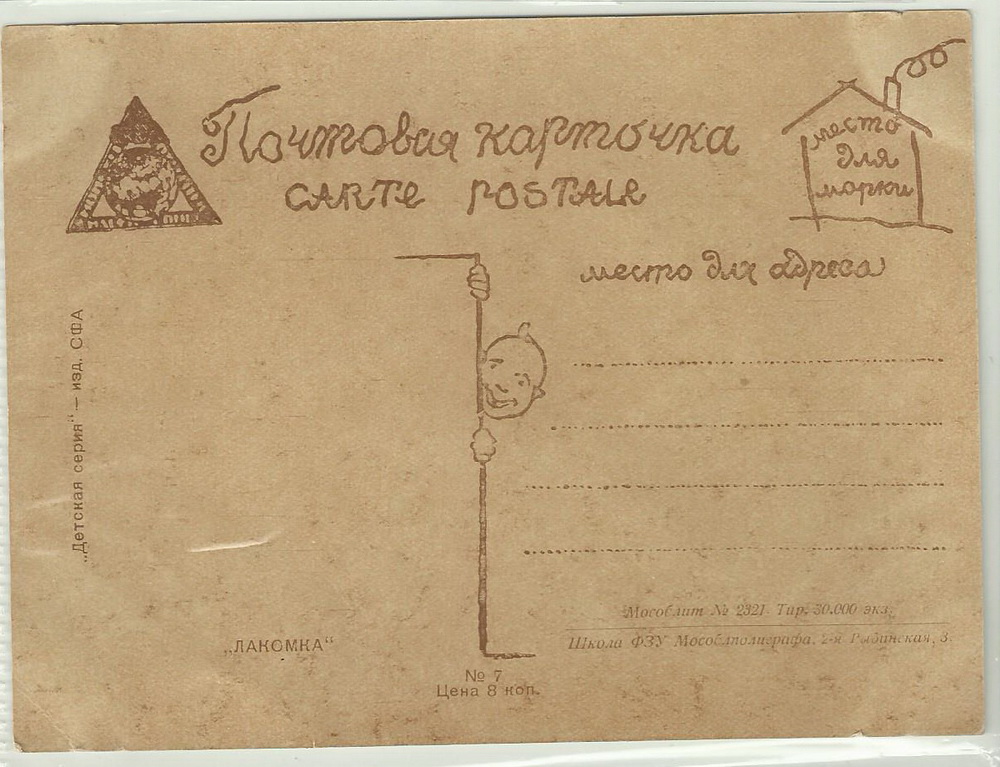 Почтовая карточка
CARTE POSTALE
место
для
марки
место для адреса
„Детская серия“ — изд. СФА
Мособлит № 2321. Тир. 30.000 экз.
Школа ФЗУ Мособлполиграфа, 2-я Рыбинская, 3.
„ЛАКОМКА“
№ 7
Цена 8 коп.